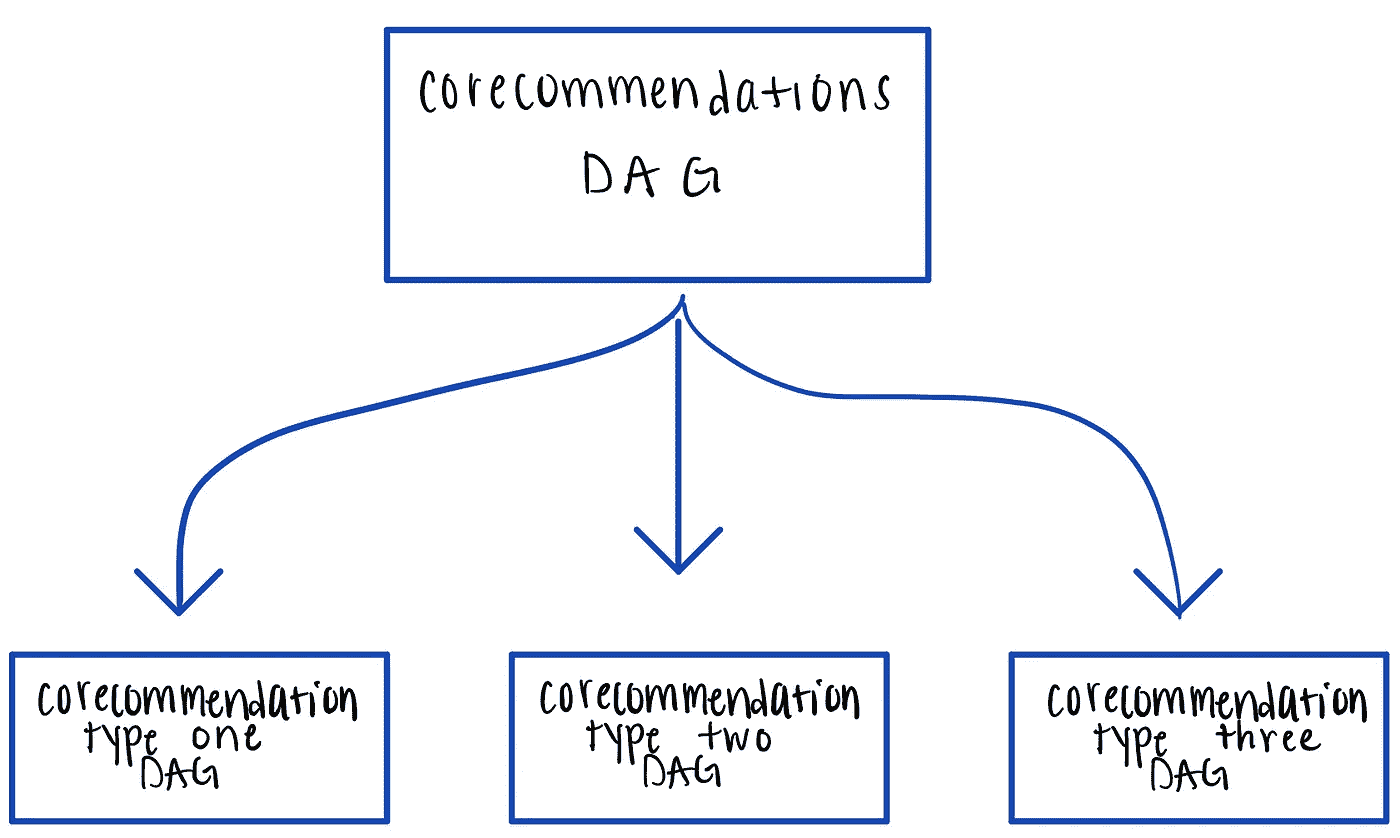 corecommendations
DAG
corecommendation
type one
DAG
corecommendation
type two
DAG
corecommendation
type three
DAG